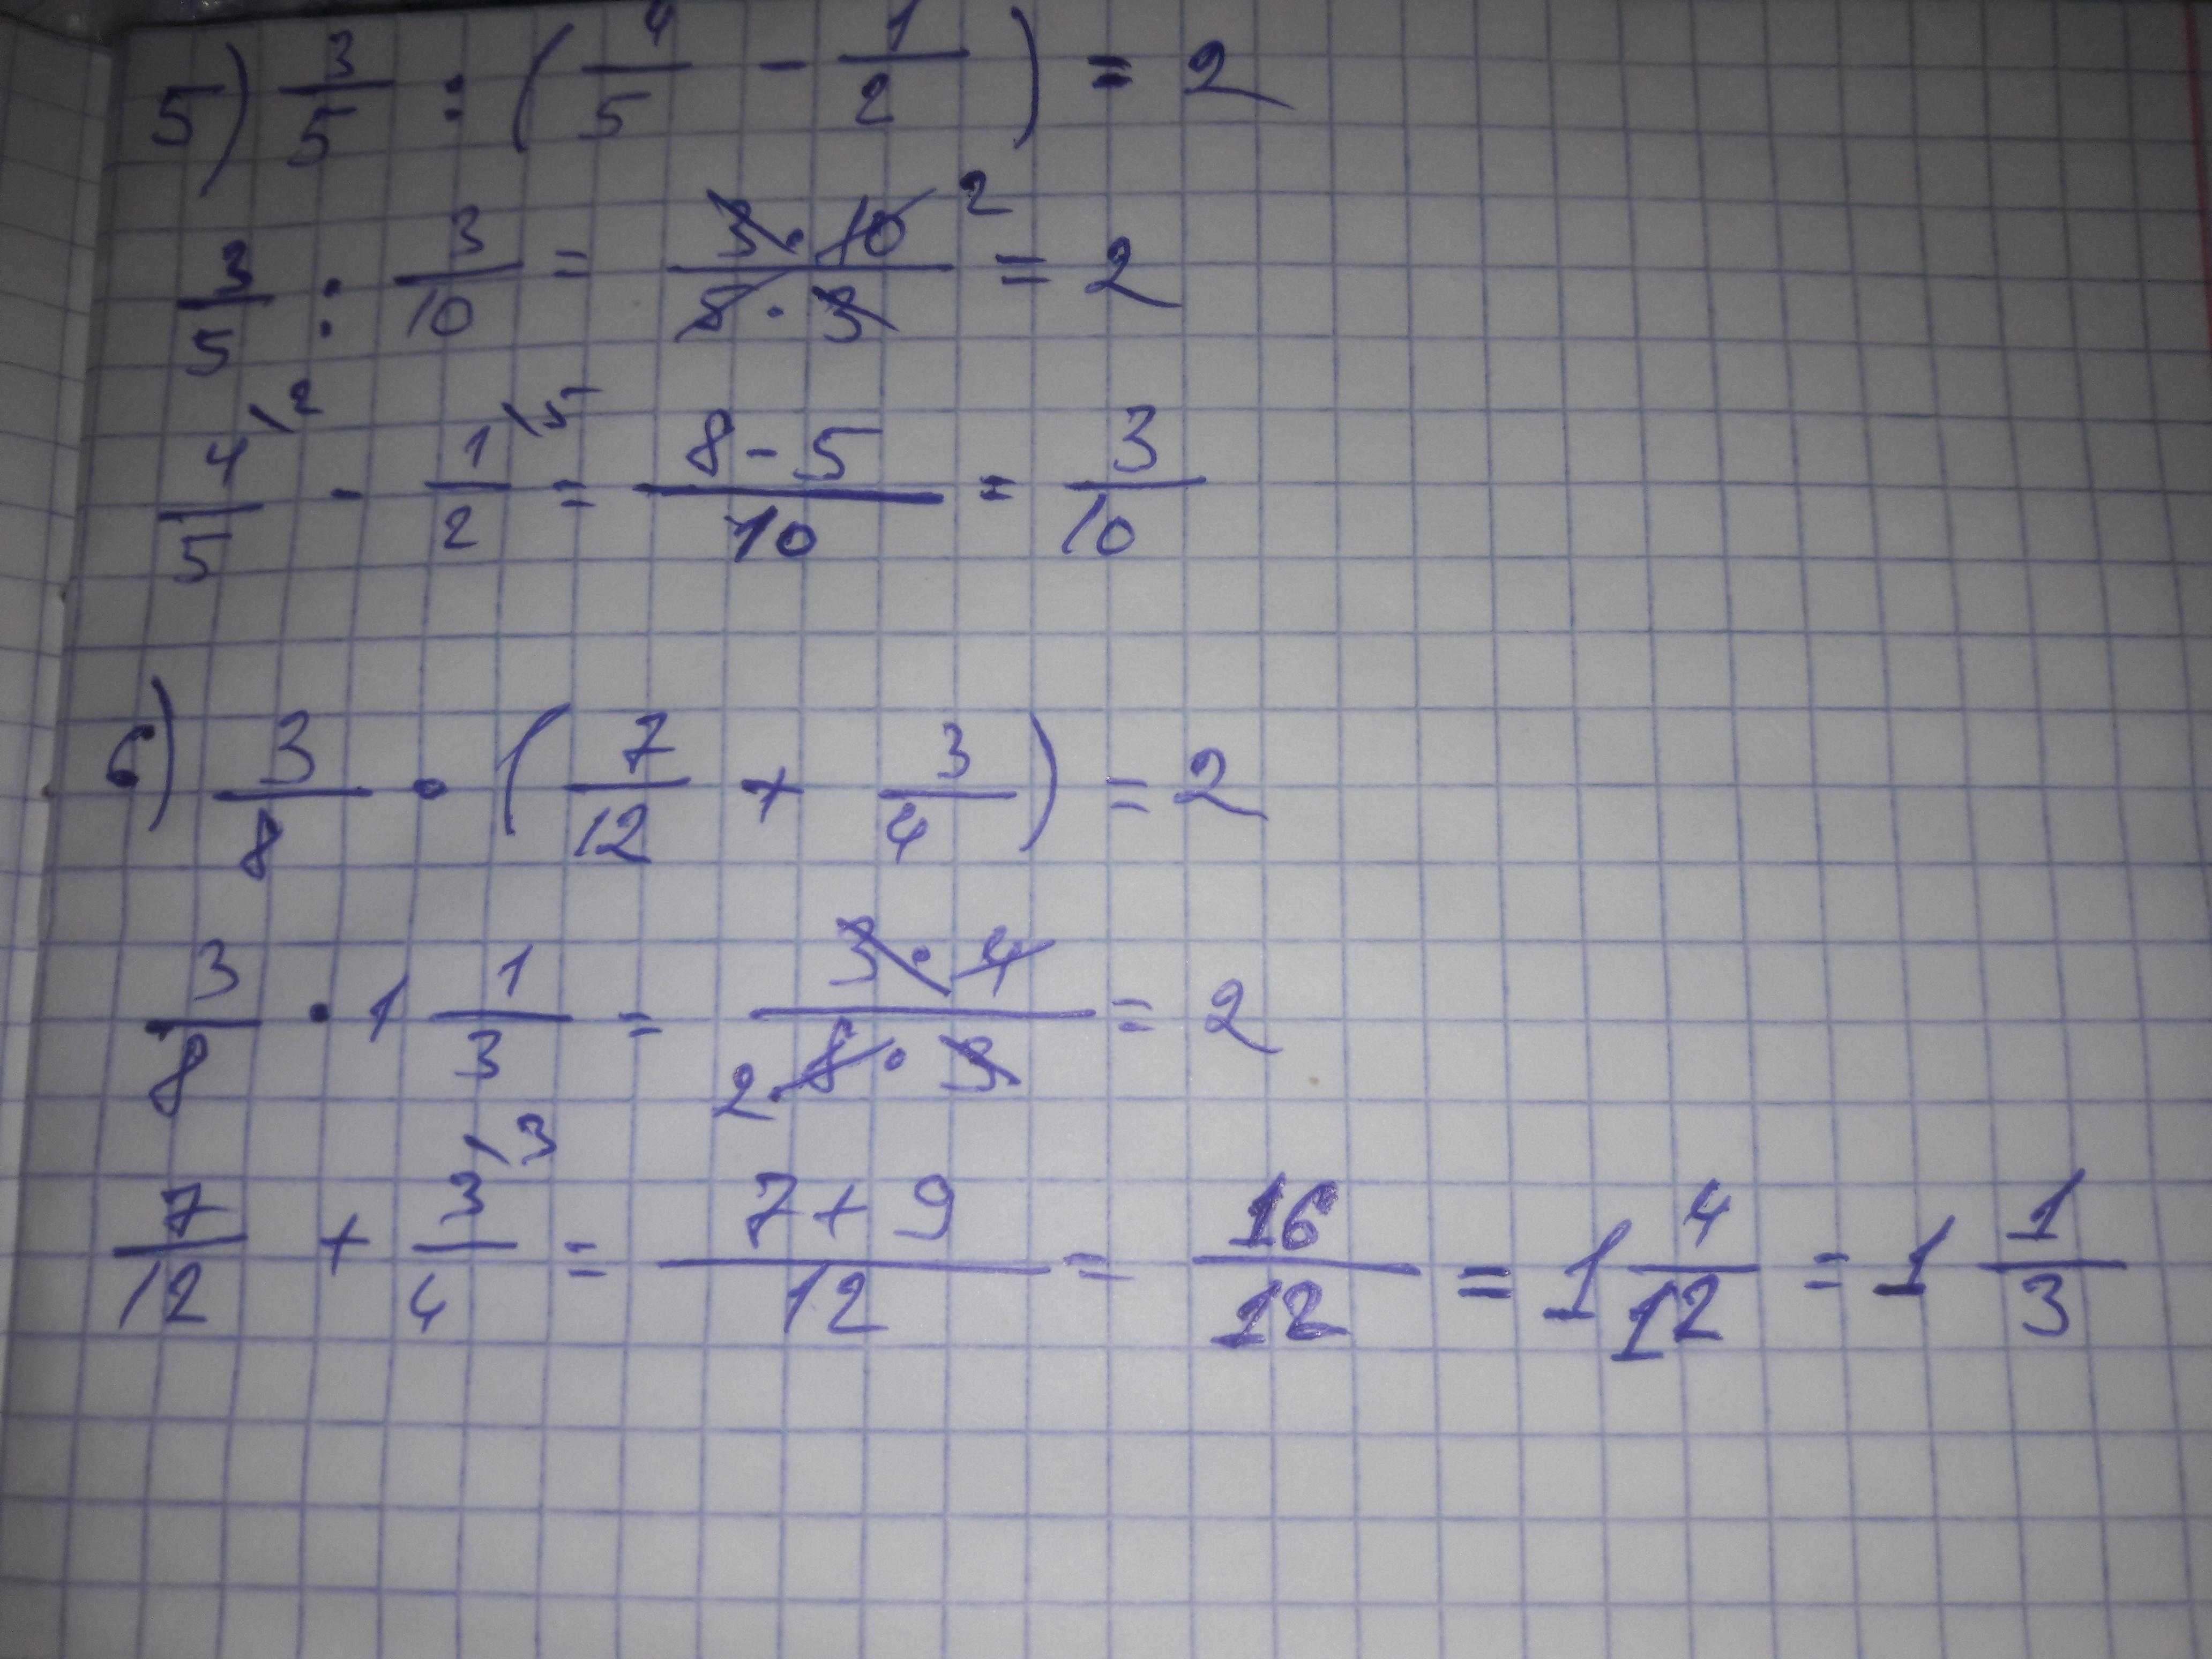 5) 3/5 : (4/5 - 1/2) = 2
3/5 : 3/10 = 3·10/5·3 2 = 2
4/5 \2 - 1/2 \5 = 8-5/10 = 3/10
6) 3/8 · (7/12 + 3/4) = 2
3/8 · 1 1/3 = 3·4/2 8·3 = 2
7/12 + 3/4 \3 = 7+9/12 = 16/12 = 1 4/12 = 1 1/3